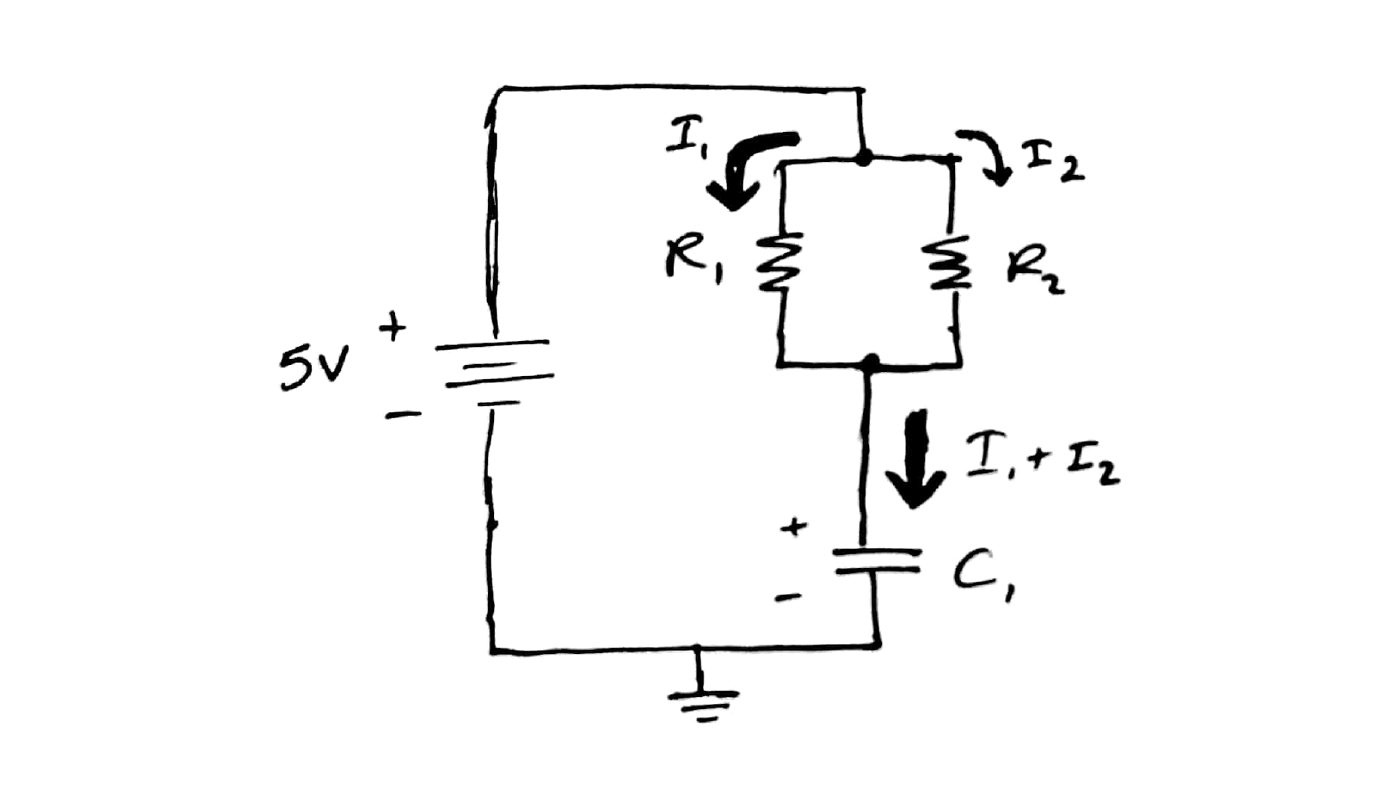 I₁
I₂
R₁
R₂
5V
+
−
I₁ + I₂
+
−
C₁